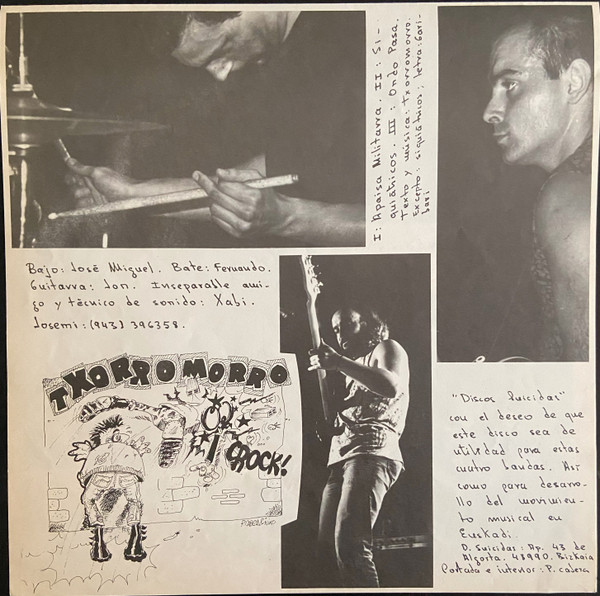 I: Apaisa Militarra. II: Si-
quiátricos. III: Ondo Pasa.
Texto y música: txorromorro.
Excepto: siquiátricos; letra: Gari-
bari
Bajo: José Miguel. Bate: Fernando.
Guitarra: Jon. Inseparable ami-
go y técnico de sonido: Xabi.
Josemi: (943) 396358.
TXORROMORRO
CROCK!
"Discos Suicidas"
con el deseo de que
este disco sea de
utilidad para estas
cuatro bandas. Así
como para desarro-
llo del movimien-
to musical en
Euskadi.
D. Suicidas: Ap. 43 de
Algorta. 48990. Bizkaia
Portada e interior: P. cabeza